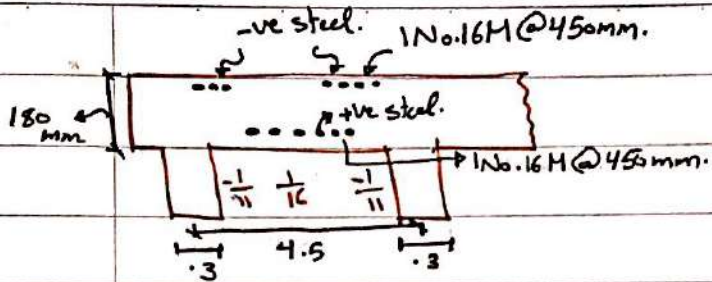 -ve steel. 1No.16M@450mm.
180 mm
+ve steel.
1No.16M@450mm.
-1/11 1/16 -1/11
.3 4.5 .3